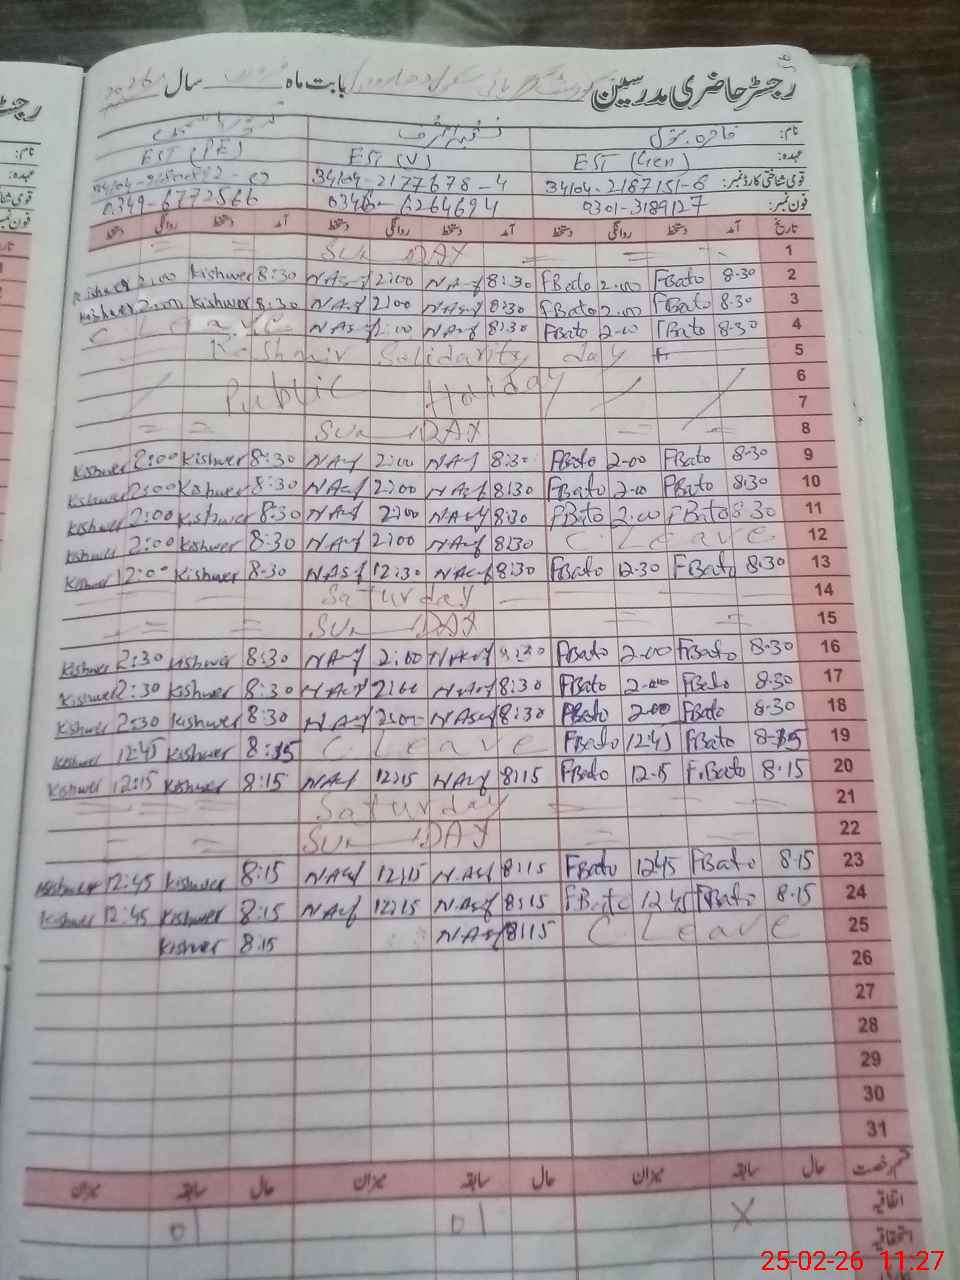 رجسٹر حاضری مدرسین بابت ماہ سال 2026
نام:
عہدہ: EST (Gen) EST (V) EST (PE)
قومی شناختی کارڈ نمبر: 34104-2187151-6 34104-2177678-4
فون نمبر: 0301-3189127 0346-6264694 0349-6772566
تاریخ آمد دستخط روانگی دستخط آمد دستخط روانگی دستخط آمد دستخط روانگی دستخط
= = SUNDAY = = 1
Kishwer 2:00 Kishwer 8:30 NAsf 2:00 NAsf 8:30 FBato 2-00 FBato 8-30 2
Kishwer 2:00 Kishwer 8:30 NAsf 2:00 NAsf 8:30 FBato 2-00 FBato 8-30 3
C Leave NAsf 2:00 NAsf 8:30 FBato 2-00 FBato 8-30 4
Kashmir Solidarity day 5
6
Public Holiday 7
= = SUNDAY = = 8
Kishwer 2:00 Kishwer 8:30 NAsf 2:00 NAsf 8:30 FBato 2-00 FBato 8-30 9
Kishwer 2:00 Kishwer 8:30 NAsf 2:00 NAsf 8:30 FBato 2-00 FBato 8:30 10
Kishwer 2:00 Kishwer 8:30 NAsf 2:00 NAsf 8:30 FBato 2-00 FBato 8-30 11
Kishwer 2:00 Kishwer 8:30 NAsf 2:00 NAsf 8:30 C. Leave 12
Kishwer 12:00 Kishwer 8-30 NAsf 12:30 NAsf 8:30 FBato 12-30 FBato 8-30 13
Saturday 14
= = SUNDAY = = 15
Kishwer 2:30 Kishwer 8:30 NAsf 2:00 NAsf 8:30 FBato 2-00 FBato 8-30 16
Kishwer 2:30 Kishwer 8:30 NAsf 2:00 NAsf 8:30 FBato 2-00 FBato 8-30 17
Kishwer 2:30 Kishwer 8:30 NAsf 2:00 NAsf 8:30 FBato 2-00 FBato 8-30 18
Kishwer 12:45 Kishwer 8:15 C. Leave FBato 12:45 FBato 8-15 19
Kishwer 12:15 Kishwer 8:15 NAsf 12:15 NAsf 8:15 FBato 12-15 F.Bato 8-15 20
Saturday 21
= = SUNDAY = = 22
Kishwer 12:45 Kishwer 8:15 NAsf 12:15 NAsf 8:15 FBato 1245 FBato 8-15 23
Kishwer 12:45 Kishwer 8:15 NAsf 12:15 NAsf 8:15 FBato 1245 FBato 8-15 24
Kishwer 8:15 NAsf 8:15 C. Leave 25
26
27
28
29
30
31
قسم رخصت حال سابقہ میزان حال سابقہ میزان حال سابقہ میزان
اتفاقیہ X 01 01
استحقاقیہ
25-02-26 11:27